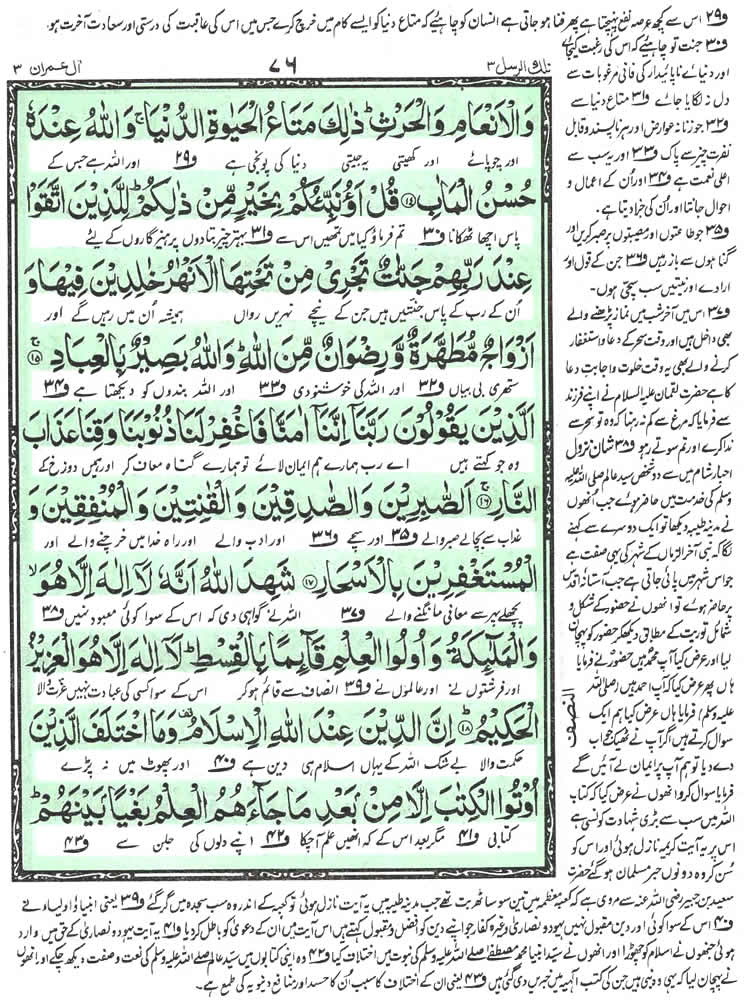 و۲۹ اس سے کچھ عرصہ نفع پہنچتا ہے پھر فنا ہو جاتی ہے انسان کو چاہئے کہ متاع دنیا کو ایسے کام میں خرچ کرے جس میں اس کی عاقبت کی درستی اور سعادت آخرت ہو۔
تلك الرسل ۳
۷۶
ال عمران ۳
وَالْاَنْعَامِ وَالْحَرْثِ ؕ ذٰلِكَ مَتَاعُ الْحَیٰوةِ الدُّنْیَا ۚ وَاللّٰهُ عِنْدَهٗ
اور چوپائے اور کھیتی یہ جیتی دنیا کی پونجی ہے و۲۹ اور اللہ ہے جس کے
حُسْنُ الْمَاٰبِ ﴿۱۴﴾ قُلْ اَؤُنَبِّئُكُمْ بِخَیْرٍ مِّنْ ذٰلِكُمْ ؕ لِلَّذِیْنَ اتَّقَوْا
پاس اچھا ٹھکانا و۳۰ تم فرماؤ کیا میں تمھیں اس سے و۳۱ بہتر چیز بتادوں پرہیزگاروں کے لئے
عِنْدَ رَبِّهِمْ جَنّٰتٌ تَجْرِیْ مِنْ تَحْتِهَا الْاَنْهٰرُ خٰلِدِیْنَ فِیْهَا وَ
اُن کے رب کے پاس جنتیں ہیں جن کے نیچے نہریں رواں ہمیشہ اُن میں رہیں گے اور
اَزْوَاجٌ مُّطَهَّرَةٌ وَّرِضْوَانٌ مِّنَ اللّٰهِ ؕ وَاللّٰهُ بَصِیْرٌۢ بِالْعِبَادِ ﴿۱۵﴾ۚ
ستھری بی بیاں و۳۲ اور اللہ کی خوشنودی و۳۳ اور اللہ بندوں کو دیکھتا ہے و۳۴
اَلَّذِیْنَ یَقُوْلُوْنَ رَبَّنَاۤ اِنَّنَاۤ اٰمَنَّا فَاغْفِرْ لَنَا ذُنُوْبَنَا وَقِنَا عَذَابَ
وہ جو کہتے ہیں اے رب ہمارے ہم ایمان لائے تو ہمارے گناہ معاف کر اور ہمیں دوزخ کے
النَّارِ ﴿۱۶﴾ۚ اَلصّٰبِرِیْنَ وَالصّٰدِقِیْنَ وَالْقٰنِتِیْنَ وَالْمُنْفِقِیْنَ وَ
عذاب سے بچالے صبر والے و۳۵ اور سچے و۳۶ اور ادب والے اور راہ خدا میں خرچنے والے اور
الْمُسْتَغْفِرِیْنَ بِالْاَسْحَارِ ﴿۱۷﴾ شَهِدَ اللّٰهُ اَنَّهٗ لَاۤ اِلٰهَ اِلَّا هُوَ ۙ
پچھلے پہر سے معافی مانگنے والے و۳۷ اللہ نے گواہی دی کہ اس کے سوا کوئی معبود نہیں و۳۸
وَالْمَلٰٓئِكَةُ وَاُولُوا الْعِلْمِ قَآئِمًۢا بِالْقِسْطِ ؕ لَاۤ اِلٰهَ اِلَّا هُوَ الْعَزِیْزُ
اور فرشتوں نے اور عالموں نے و۳۹ انصاف سے قائم ہوکر اس کے سوا کسی کی عبادت نہیں عزت والا
الْحَكِیْمُ ﴿۱۸﴾ؕ اِنَّ الدِّیْنَ عِنْدَ اللّٰهِ الْاِسْلَامُ ۟ وَمَا اخْتَلَفَ الَّذِیْنَ
حکمت والا بے شک اللہ کے یہاں اسلام ہی دین ہے و۴۰ اور پھوٹ میں نہ پڑے
اُوْتُوا الْكِتٰبَ اِلَّا مِنْۢ بَعْدِ مَا جَآءَهُمُ الْعِلْمُ بَغْیًۢا بَیْنَهُمْ ؕ
کتابی و۴۱ مگر بعد اس کے کہ انھیں علم آچکا و۴۲ اپنے دلوں کی جلن سے و۴۳
النصف
و۳۰ جنت تو چاہئے کہ اس کی رغبت کیجائے
اور دنیائے ناپائیدار کی فانی مرغوبات سے
دل نہ لگایا جائے و۳۱ متاع دنیا سے
و۳۲ جو زنانہ عوارض اور ہر ناپسند و قابل
نفرت چیز سے پاک و۳۳ اور یہ سب سے
اعلی نعمت ہے و۳۴ اور اُن کے اعمال و
احوال جانتا اور اُن کی جزا دیتا ہے۔
و۳۵ جو طاعتوں اور مصیبتوں پر صبر کریں اور
گناہوں سے باز رہیں و۳۶ جن کے قول اور
ارادے اور نیتیں سب سچی ہوں۔
و۳۷ اس میں آخر شب میں نماز پڑھنے والے
بھی داخل ہیں اور وقت سحر کے دعا و استغفار
کرنے والے بھی یہ وقت خلوت و اجابت دعا
کا ہے حضرت لقمان علیہ السلام نے اپنے فرزند
سے فرمایا کہ مرغ سے کم نہ رہنا کہ وہ تو سحر سے
ندا کرے اور تم سوتے رہو و۳۸ شان نزول
احبار شام میں سے دو شخص سید عالم صلی اللہ علیہ
وسلم کی خدمت میں حاضر ہوئے جب اُنھوں
نے مدینہ طیبہ دیکھا تو ایک دوسرے سے کہنے
لگا کہ نبی آخر الزماں کے شہر کی یہی صفت ہے
جو اس شہر میں پائی جاتی ہے جب آستانہ اقدس
پر حاضر ہوئے تو انھوں نے حضور کے شکل و
شمائل توریت کے مطابق دیکھ کر حضور کو پہچان
لیا اور عرض کیا آپ محمد ہیں حضور نے فرمایا
ہاں پھر عرض کیا کہ آپ احمد ہیں (صلی اللہ
علیہ وسلم) فرمایا ہاں عرض کیا ہم ایک
سوال کرتے ہیں اگر آپ نے ٹھیک جواب
دے دیا تو ہم آپ پر ایمان لے آئیں گے
فرمایا سوال کرو انھوں نے عرض کیا کہ کتاب
اللہ میں سب سے بڑی شہادت کونسی ہے
اس پر یہ آیت کریمہ نازل ہوئی اور اس کو
سُن کر وہ دونوں حبر مسلمان ہوگئے حضرت
سعید بن جبیر رضی اللہ عنہ سے مروی ہے کہ کعبہ معظمہ میں تین سو ساٹھ بت تھے جب مدینہ طیبہ میں یہ آیت نازل ہوئی تو کعبہ کے اندر وہ سب سجدہ میں گر گئے و۳۹ یعنی انبیاء و اولیاء نے
و۴۰ اس کے سوا کوئی اور دین مقبول نہیں یہود و نصاریٰ وغیرہ کفار جو اپنے دین کو افضل و مقبول کہتے ہیں اس آیت میں ان کے دعویٰ کو باطل کر دیا و۴۱ یہ آیت یہود و نصاریٰ کے حق میں وارد
ہوئی جنھوں نے اسلام کو چھوڑا اور انھوں نے سید انبیا محمد مصطفےٰ صلے اللہ علیہ وسلم کی نبوت میں اختلاف کیا و۴۲ وہ اپنی کتابوں میں سید عالم صلے اللہ علیہ وسلم کی نعت و صفت دیکھ چکے اور انھوں
نے پہچان لیا کہ یہی وہ نبی ہیں جن کی کتب الہیہ میں خبریں دی گئی ہیں و۴۳ یعنی ان کے اختلاف کا سبب اُن کا حسد اور منافع دنیویہ کی طمع ہے۔